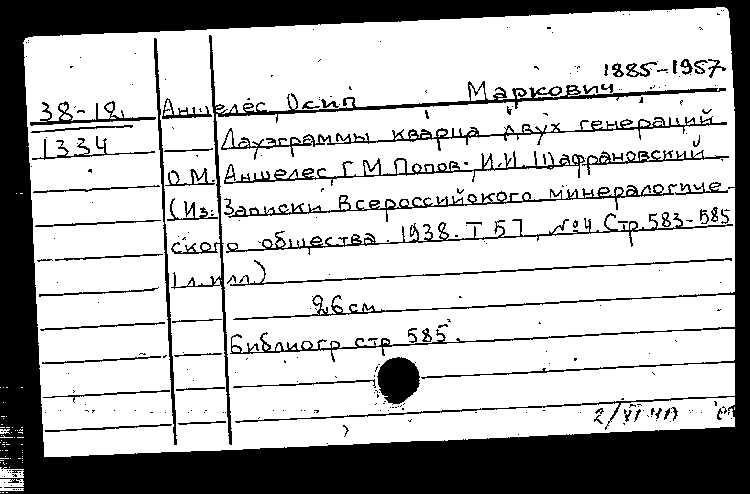 1885-1957
38-12
1334
Аншелес, Осип Маркович
Лауэграммы кварца двух генераций
О.М. Аншелес, Г.М. Попов. И.И. Шафрановский.
(Из: Записки Всероссийского минералогиче-
ского общества. 1938. Т. 57, №4. Стр. 583-585
1 л. илл.)
26 см.
Библиогр стр 585.